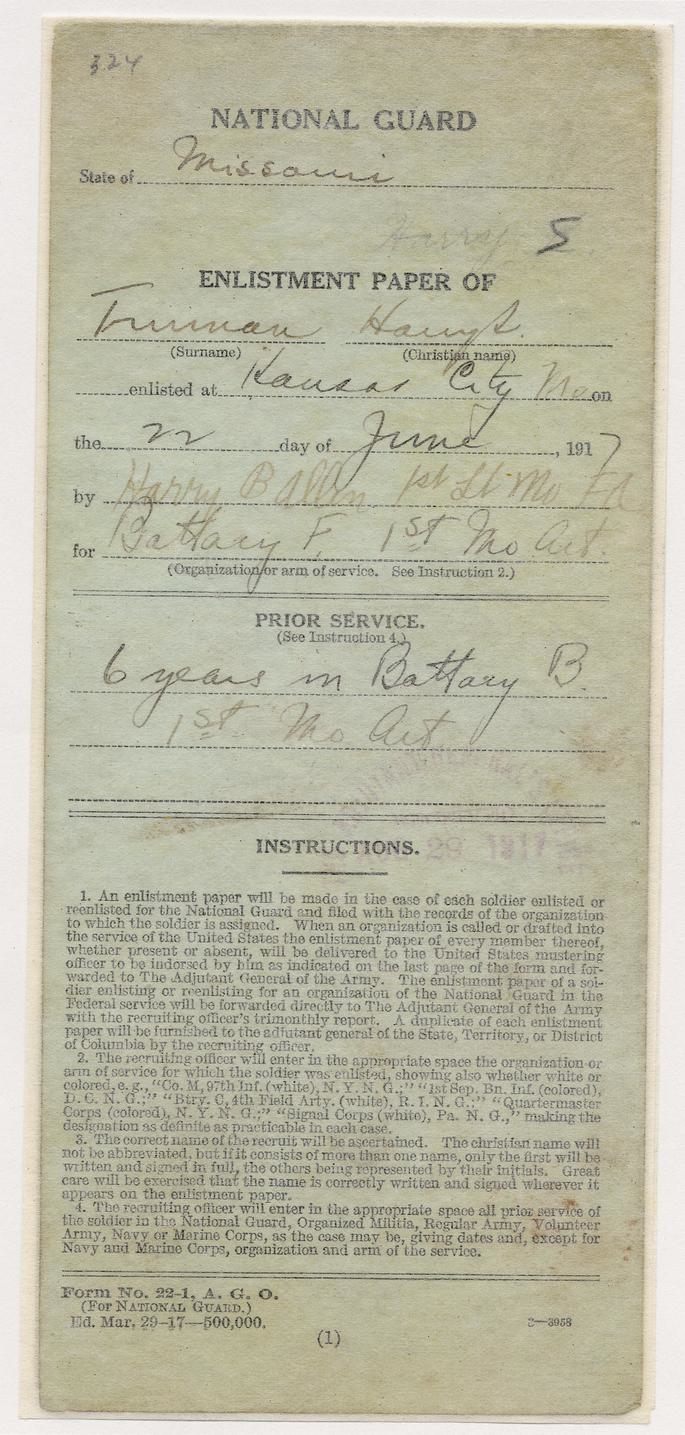 324
NATIONAL GUARD
State of Missouri
Harry S.
ENLISTMENT PAPER OF
Truman Harry S.
(Surname) (Christian name)
enlisted at Kansas City Mo on
the 22 day of June, 1917
by Harry B Allen 1st Lt Mo FA
for Battary F, 1st Mo Art.
(Organization or arm of service. See Instruction 2.)
PRIOR SERVICE.
(See Instruction 4.)
6 years in Battary B.
1st Mo Art
29 1917
INSTRUCTIONS.
1. An enlistment paper will be made in the case of each soldier enlisted or
reenlisted for the National Guard and filed with the records of the organization
to which the soldier is assigned. When an organization is called or drafted into
the service of the United States the enlistment paper of every member thereof,
whether present or absent, will be delivered to the United States mustering
officer to be indorsed by him as indicated on the last page of the form and for-
warded to The Adjutant General of the Army. The enlistment paper of a sol-
dier enlisting or reenlisting for an organization of the National Guard in the
Federal service will be forwarded directly to The Adjutant General of the Army
with the recruiting officer's trimonthly report. A duplicate of each enlistment
paper will be furnished to the adjutant general of the State, Territory, or District
of Columbia by the recruiting officer.
2. The recruiting officer will enter in the appropriate space the organization or
arm of service for which the soldier was enlisted, showing also whether white or
colored, e.g., "Co. M, 97th Inf. (white), N. Y. N. G.;" "1st Sep. Bn. Inf. (colored),
D. C. N. G.;" "Btry. C, 4th Field Arty. (white), R. I. N. G.;" "Quartermaster
Corps (colored), N. Y. N. G.;" "Signal Corps (white), Pa. N. G.," making the
designation as definite as practicable in each case.
3. The correct name of the recruit will be ascertained. The christian name will
not be abbreviated, but if it consists of more than one name, only the first will be
written and signed in full, the others being represented by their initials. Great
care will be exercised that the name is correctly written and signed wherever it
appears on the enlistment paper.
4. The recruiting officer will enter in the appropriate space all prior service of
the soldier in the National Guard, Organized Militia, Regular Army, Volunteer
Army, Navy or Marine Corps, as the case may be, giving dates and, except for
Navy and Marine Corps, organization and arm of the service.
Form No. 22-1, A. G. O.
(FOR NATIONAL GUARD.)
Ed. Mar. 29-17—500,000.
3—3958
(1)